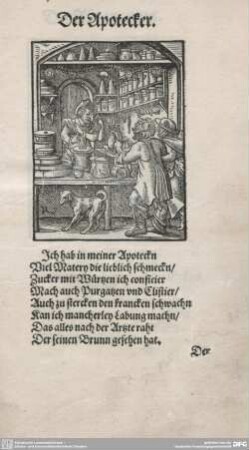 Der Apotecker.
Ich hab in meiner Apoteckn
Viel Matery die lieblich schmeckn/
Zucker mit Würtzen ich conficier
Mach auch Purgatzen vnd Clistier/
Auch zu stercken den krancken schwachn
Kan ich mancherley Labung machn/
Das alles nach der Artzte raht
Der seinen Brunn gesehen hat.
Der